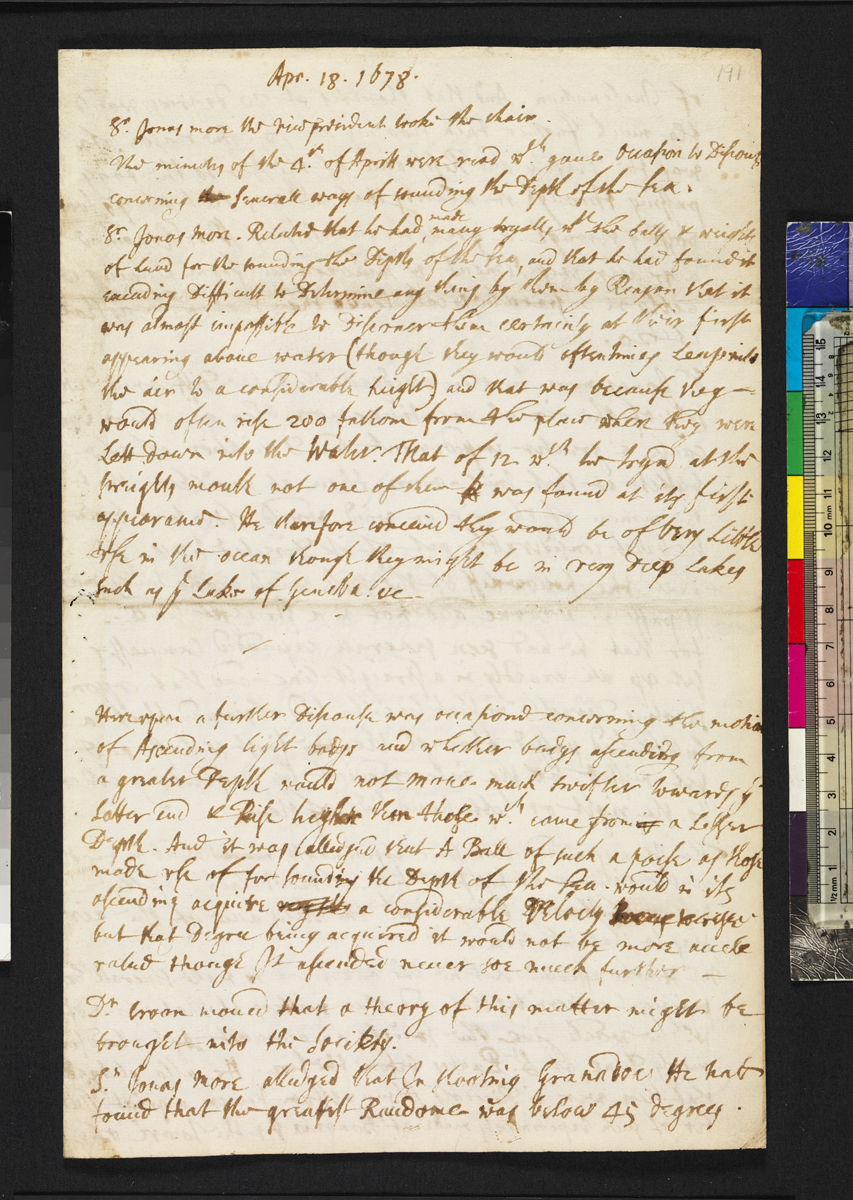 Apr. 18. 1678.
141
Sr. Jonas more the vice president tooke the chair.
The minutes of the 4th. of Aprill were read wch. gaue Occasion to Discourse
concerning the seuerall ways of sounding the Depth of the Sea.
Sr. Jonas more. Related that he had made many tryalls wth the balls & weights
of Lead for the sounding the Depths of the sea, and that he had found it
exceeding Difficult to Determine any thing by them by Reason that it
was almost impossible to Discerne them certainly at their first
appearing aboue water (though they would oftentimes Leap into
the air to a considerable hight) and that was because they
would often rise 200 fathom from the place where they were
Lett down into the Water. That of 12 wch. he tryd at the
streights mouth not one of them was found at its first
appearance. He therefore conceiud they would be of Very Little
vse in the ocean though they might be in very deep Lakes
such as ye Lake of Geneba. &c
Hereupon a further Discourse was occasiond concerning the motion
of Ascending light bodys and whether bodys ascending from
a greater Depth would not moue much swifter towards ye
Latter end & Rise higher then those wch. came from a Lesser
Depth. And it was alledged that A Ball of such a poise as those
made vse of for sounding the Depth of the Sea. would in its
ascending acquire a considerable Velocity
but that Degree being acquired it would not be more accele
rated though It ascended neuer soe much further
Dr Croon moued that a theory of this matter might be
brought into the Society.
Sr. Jonas more alledged that In shooting Granadoes He had
found that the greatest Randome was below 45 degrees.